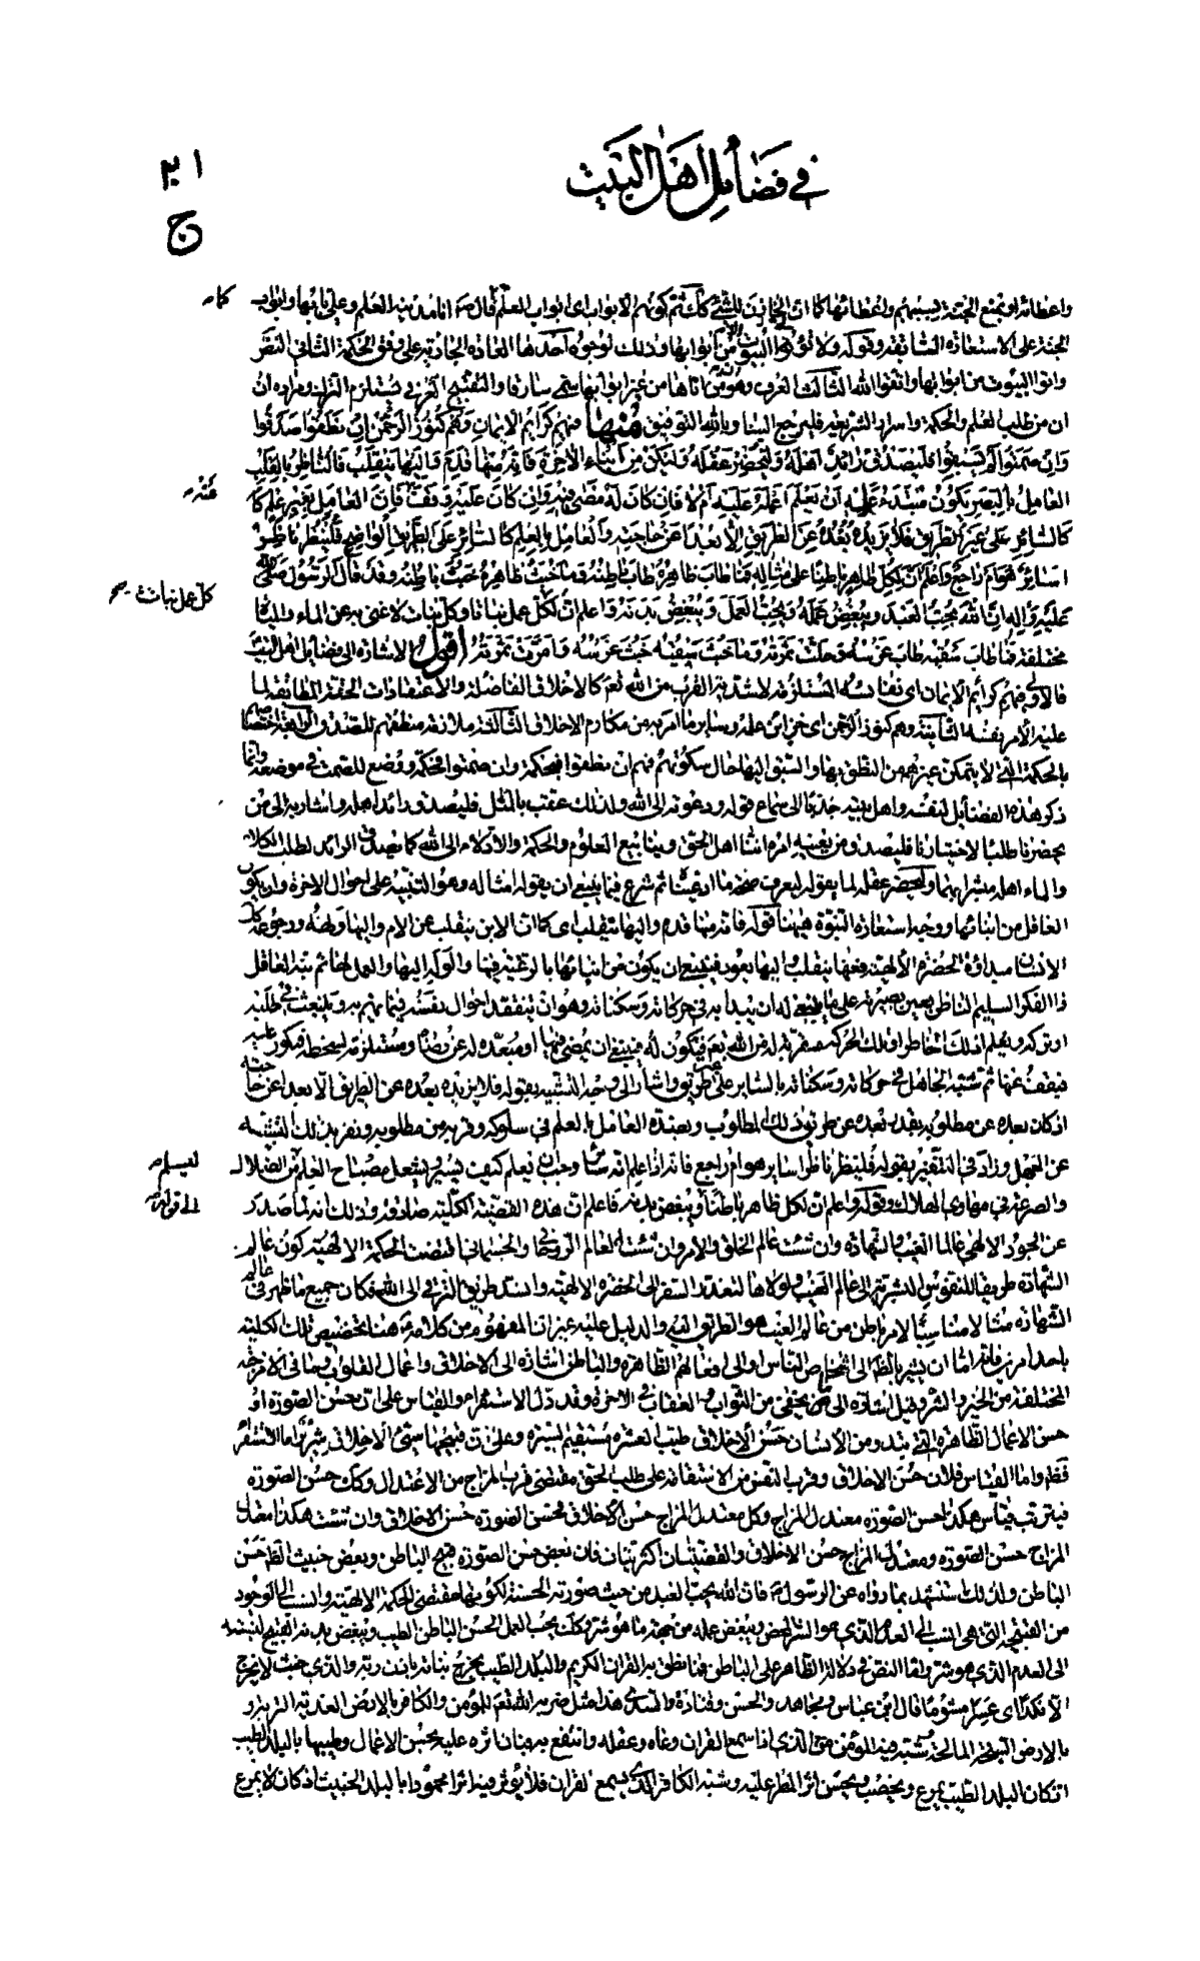 في فضائل اهل البيت
٣٠١
ج
واعطائه او بمنع الجنة بسببهم واعطائها كما ان الخازن للشئ كك ثم كونهم الابواب اى ابواب العلم قال ص انا مدينة العلم وعلى بابها وابواب
الجنة على الاستعارة السابقة وقوله ولا تؤتى البيوت الا من ابوابها وذلك لوجوه احدها العادة الجارية على وفق الحكمة الثانى النص
واتوا البيوت من ابوابها واتقوا الله الثالث العرف وهو ان من اتاها من غير ابوابها سمى سارقا والتقبيح العرفى يستلزم الترك ومراده ان
ان من طلب العلم والحكمة واسرار الشريعة فليرجع الينا وبالله التوفيق منها فيهم كرائم الايمان وهم كنوز الرحمن ان نطقوا صدقوا
وان صمتوا لم يسبقوا فليصدق رائد اهله وليحضر عقله وليكن من ابناء الاخرة فانه منها قدم واليها ينقلب فالناظر بالقلب
العامل بالبصر يكون مبتدء عمله ان يعلم اعمله عليه ام له فان كان له مضى فيه وان كان عليه وقف عنه فان العامل بغير علم
كالسائر على غير طريق فلا يزيده بعده عن الطريق الا بعدا عن حاجته والعامل بالعلم كالسائر على الطريق الواضح فلينظر ناظر
اسائر هو ام راجع واعلم ان لكل ظاهر باطنا على مثاله فما طاب ظاهره طاب باطنه وما خبث ظاهره خبث باطنه وقد قال الرسول صلى الله
عليه واله ان الله يحب العبد ويبغض عمله ويحب العمل ويبغض بدنه واعلم ان لكل عمل نباتا وكل نبات لا غنى به عن الماء والمياه
مختلفة فما طاب سقيه طاب غرسه وحلت ثمرته وما خبث سقيه خبث غرسه وامرت ثمرته اقول الاشارة الى فضائل اهل البيت
فالاولى فيهم كرائم الايمان اى نفائسه المستلزمة لاشدية القرب من الله تعم كالاخلاق الفاضلة والاعتقادات الحقة المطابقة لما
عليه الامر نفسه الثانية وهم كنوز الرحمن اى خزائن علمه وساير ما امر به من مكارم الاخلاق الثالثة ملازمة منطقهم للصدق الرابعة اختصاصهم
بالحكمة التى لا يتمكن غيرهم من النطق بها والسبق اليها حال سكوتهم فهم ان نطقوا فبحكمة وان صمتوا فحكمة ووضع للصمت فى موضعه وانما
ذكر هذه الفضايل لنفسه واهل بيته جذبا الى سماع قوله ودعوته الى الله ولذلك عقب بالمثل فليصدق رائد اهله واشار به الى من
يحضرنا طلبا لاختبارنا فليصدق من يعنيه امره اننا اهل الحق وينابيع العلوم والحكمة والادلاء الى الله كما يصدق الرائد لطلب الكلاء
والماء اهله مبشرا بهما وليحضر عقله لما يقوله ليعرف صحة ما ادعيناه ثم شرع فيما ينبغى ان يقوله امثاله وهو التنبيه على احوال الاخرة وان يكون
العاقل من ابنائها ووجه استعارة البنوة هيهنا قوله فانه منها قدم واليها ينقلب اى كما ان الابن ينقلب عن الام واليها وله ورجوعه كك
الانسان مبداؤه الحضرة الالهية فعنها ينقلب واليها يعود فينبغى ان يكون من ابنائها بالرغبة فيها والوله اليها والعمل لها ثم نبه العاقل
ذا الفكر السليم الناظر بعين بصيرته على ما ينبغى له ان يبدأ به فى حركاته وسكناته وهو ان يتفقد احوال نفسه فيما يهم به وينبعث فى طلبه
او تركه ويعلم اذلك الخاطر او تلك الحركة مقربة له من الله تعم فيكون له فينبغى ان يمضى فيها او مبعدة له عن رضاه ومستلزمة لسخطه فيكون عليه
فيقف عنها ثم شبه الجاهل فى حركاته وسكناته بالساير على غير طريق واشار الى وجه التشبيه بقوله فلا يزيده بعده عن الطريق الا بعدا عن حاجته
اذ كان بعده عن مطلوبه بقدر بعده عن طريق ذلك المطلوب وبضده العامل بالعلم فى سلوكه وقربه من مطلوبه ونفر بذلك التشبيه
عن الجهل وزاد فى التنفير بقوله فلينظر ناظر اساير هو ام راجع فانه اذا علم انه ساير وجب ان يعلم كيف يسير ويشعل مصباح العلم ليسلم من الضلال
والصرعة فى مهاوى الهلاك وقوله واعلم ان لكل ظاهر باطنا الى قوله ويبغض بدنه فاعلم ان هذه القضية الكلية صادقة وذلك انه لما صدر
عن الجود الالهى عالما الغيب والشهادة وان شئت عالم الخلق والامر وان شئت العالم الروحانى والجسمانى اقتضت الحكمة الالهية كون عالم
الشهادة طريقا للنفوس البشرية الى عالم الغيب ولولاها لتعذر السفر الى الحضرة الالهية وانسد طريق الترقى الى الله فكان جميع ما ظهر فى عالم
الشهادة مثالا مناسبا لامر باطن من عالم الغيب هو الطريق اليه والدليل عليه غير ان المفهوم من كلامه هنا تخصيص تلك الكلية
باحد امرين فانه اما ان يشير بالظاهر الى اشخاص الناس او الى افعالهم الظاهرة والباطن اشارة الى الاخلاق واعمال القلوب وما فى الامزجة
المختلفة من الخير والشر وقيل اشارة الى ما يخفى من الثواب والعقاب فى الاخرة وقد دل الاستقراء والقياس على ان حسن الصورة او
حسن الاعمال الظاهرة التى تبدو من الانسان حسن الاخلاق طيب العشرة مستقيم السيرة وعلى ان قبيحها سيئ الاخلاق شرير اما الاستقراء
فظ واما القياس فلان حسن الاخلاق وقرب النفس من الاستقامة على طلب الحق مقتضى قرب المزاج من الاعتدال وكك حسن الصورة
فيترتب قياس هكذا حسن الصورة معتدل المزاج وكل معتدل المزاج حسن الاخلاق فحسن الصورة حسن الاخلاق وان شئت هكذا معتدل
المزاج حسن الصورة ومعتدل المزاج حسن الاخلاق والقضيتان اكثريتان فان بعض حسن الصورة قبيح الباطن وبعض خبيث الظاهر حسن
الباطن ولذلك استشهد بما رواه عن الرسول ص فان الله يحب العبد من حيث صورته الحسنة لكونها مقتضى الحكمة الالهية والنسب الى الوجود
من القبيحة التى هى انسب الى العدم الذى هو الشر المحض ويبغض عمله من جهة ما هو شر وكك يحب العمل الحسن الباطن الطيب ويبغض بدنه القبيح لنسبته
الى العدم الذى هو شر واما النص فى دلالة الظاهر على الباطن فما نطق به القران الكريم والبلد الطيب يخرج نباته باذن ربه والذى خبث لا يخرج
الا نكدا اى عسرا مشؤما قال ابن عباس ومجاهد والحسن وقتادة والسدى هذا مثل ضربه الله تعم للمؤمن والكافر بالارض العذبة التربة و
بالارض السبخة المالحة شبه فيه المؤمن الذى اذا سمع القران وعاه وعقله وانتفع به فبان اثره عليه بحسن الاعمال وطيبها بالبلد الطيب
اذ كان البلد الطيب يمرع ويخصب ويحسن اثر المطر عليه وشبه الكافر الذى يسمع القران فلا يؤثر فيه اثرا محمودا بالبلد الخبيث اذ كان لا يمرع